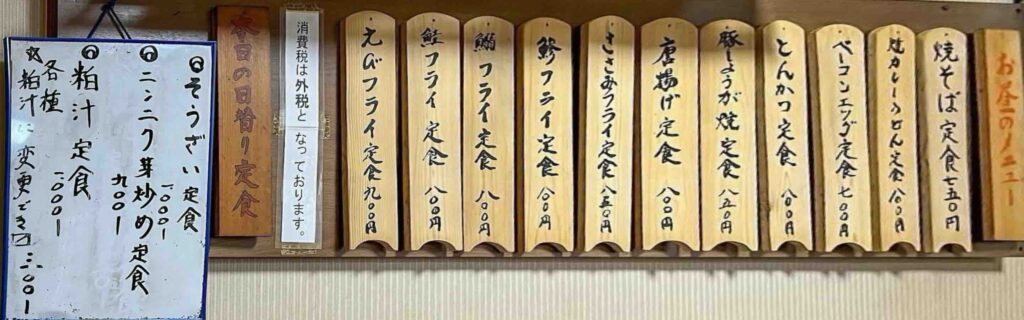 お昼のメニュー
焼そば定食 七五〇円
焼カレーうどん定食 八〇〇円
ベーコンエッグ定食 七〇〇円
とんかつ定食 八〇〇円
豚しょうが焼定食 八五〇円
唐揚げ定食 八〇〇円
ささみフライ定食 八五〇円
鯵フライ定食 八〇〇円
鰯フライ定食 八〇〇円
鮭フライ定食 八〇〇円
えびフライ定食 九〇〇円
消費税は外税となっております。
本日の日替り定食
そうざい定食 一〇〇〇
ニンニク芽炒め定食 九〇〇
粕汁定食 一〇〇〇
各種
粕汁に変更でき